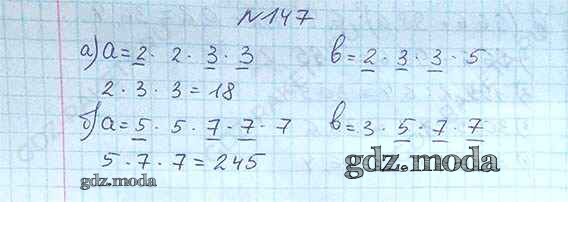 №147
а) a = 2 · 2 · 3 · 3   b = 2 · 3 · 3 · 5
2 · 3 · 3 = 18
б) a = 5 · 5 · 7 · 7 · 7   b = 3 · 5 · 7 · 7
5 · 7 · 7 = 245
gdz.moda
gdz.moda